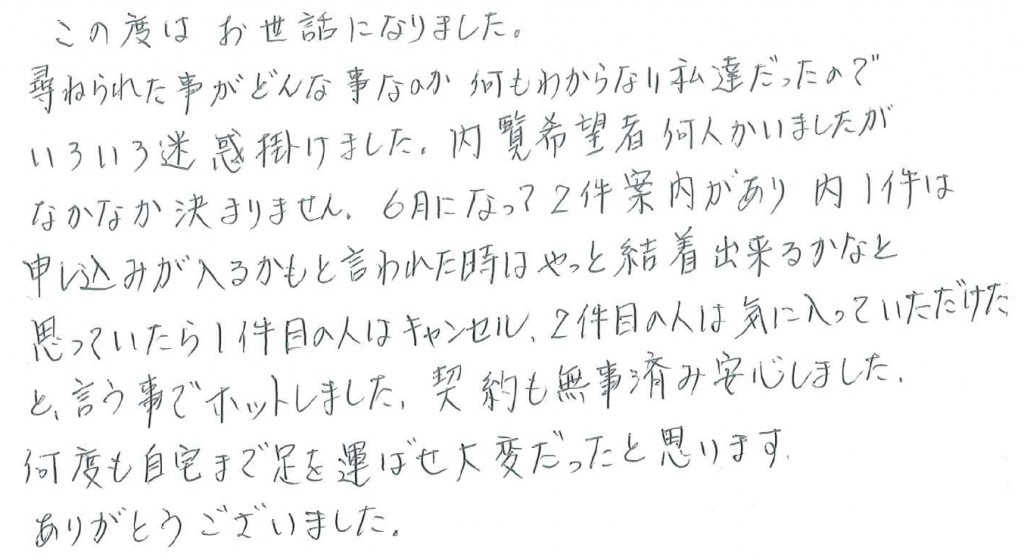 この度は お世話になりました。
尋ねられた事がどんな事なのか 何もわからない私達だったので
いろいろ迷惑掛けました。内覧希望者 何人かいましたが
なかなか決まりません。6月になって2件案内があり 内1件は
申し込みが入るかもと言われた時はやっと結着出来るかなと
思っていたら1件目の人はキャンセル、2件目の人は気に入っていただけた
と、言う事でホットしました。契約も無事済み安心しました。
何度も自宅まで足を運ばせ大変だったと思います。
ありがとうございました。